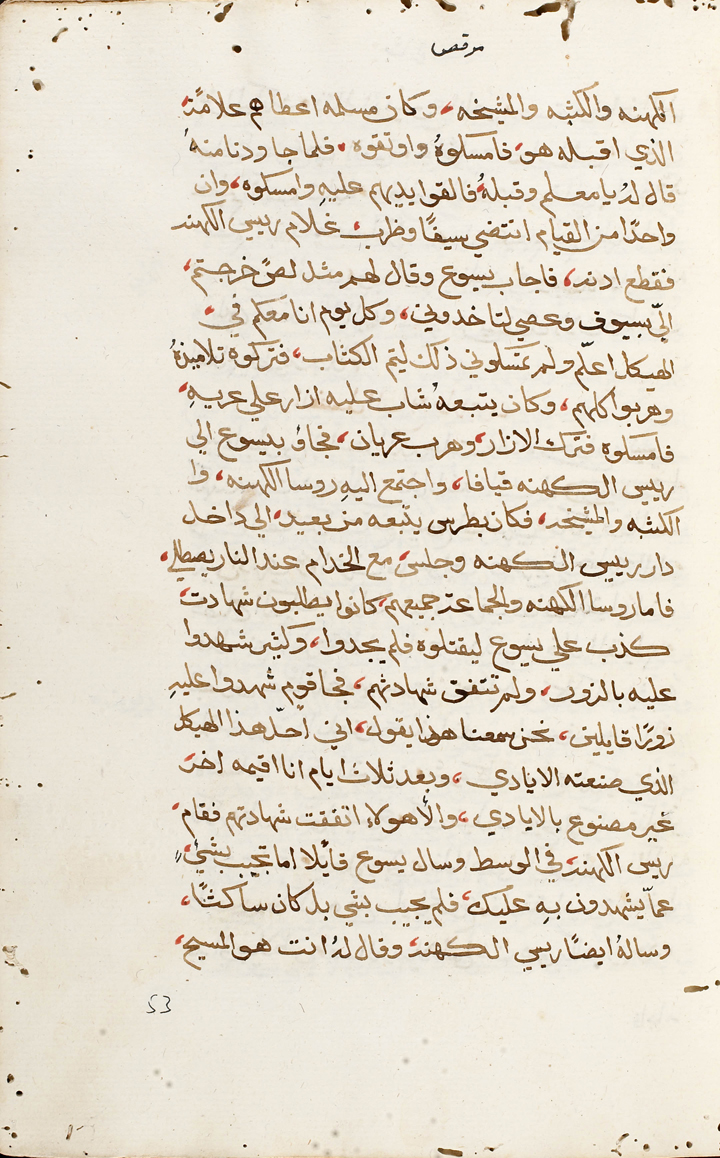 مرقص
الكهنه والكتبه والمشيخه، وكان مسلمه اعطاهم علامةً
الذي اقبله هو، فامسكوهُ واوتقوه، فلما جا ودنا منهُ
قال لهُ يا معلم وقبلهُ فالقوا يديهم عليهِ وامسكوه، وان
واحدًا من القيام انتضي سيفًا وضرب غلام رييس الكهنه
فقطع ادنه، فاجاب يسوع وقال لهم مثل لصٍ خرجتم،
اليّ بسيوف وعصي لتاخدوني، وكل يوم انا معكم في،
الهيكل اعلّم ولم تمسكوني ذلك ليتم الكتاب، فتركوه تلاميذهُ
وهربوا كلهم، وكان يتبعهُ شاب عليه ازار علي عريهِ،
فامسكوه فترك الازار، وهرب عريان، فجاؤ بيسوع الي
رييس الكهنه قيافا، واجتمع اليهِ روسا الكهنه، وا
الكتبه والمشيخه، فكان بطرس يتبعه من بعيد، الي داخل
دار رييس الكهنه وجلس، مع الخدام عند النار يصطلي،
فاما روسا الكهنه والجماعة جميعهم، كانوا يطلبون شهادت
كذب علي يسوع ليقتلوه فلم يجدوا، وكثير شهدوا
عليه بالزور، ولم تتفق شهادتهم، فجا قوم شهدوا عليهِ
زورًا قايلين، نحن سمعنا هذا يقول، اني احلّ هذا الهيكل
الذي صنعته الايادي، وبعد ثلاث ايام انا اقيمه اخر
غير مصنوع بالايادي، والأ هولاءِ اتفقت شهادتهم فقام
ريس الكهنه، في الوسط وسال يسوع قايًلا اما تجيب بشيءٍ
عماّ يشهدون بهِ عليك، فلم يجيب بشي بل كان ساكتًا،
وسالهُ ايضًا ريس الكهنه، وقال لهُ انت هو المسيح،
53